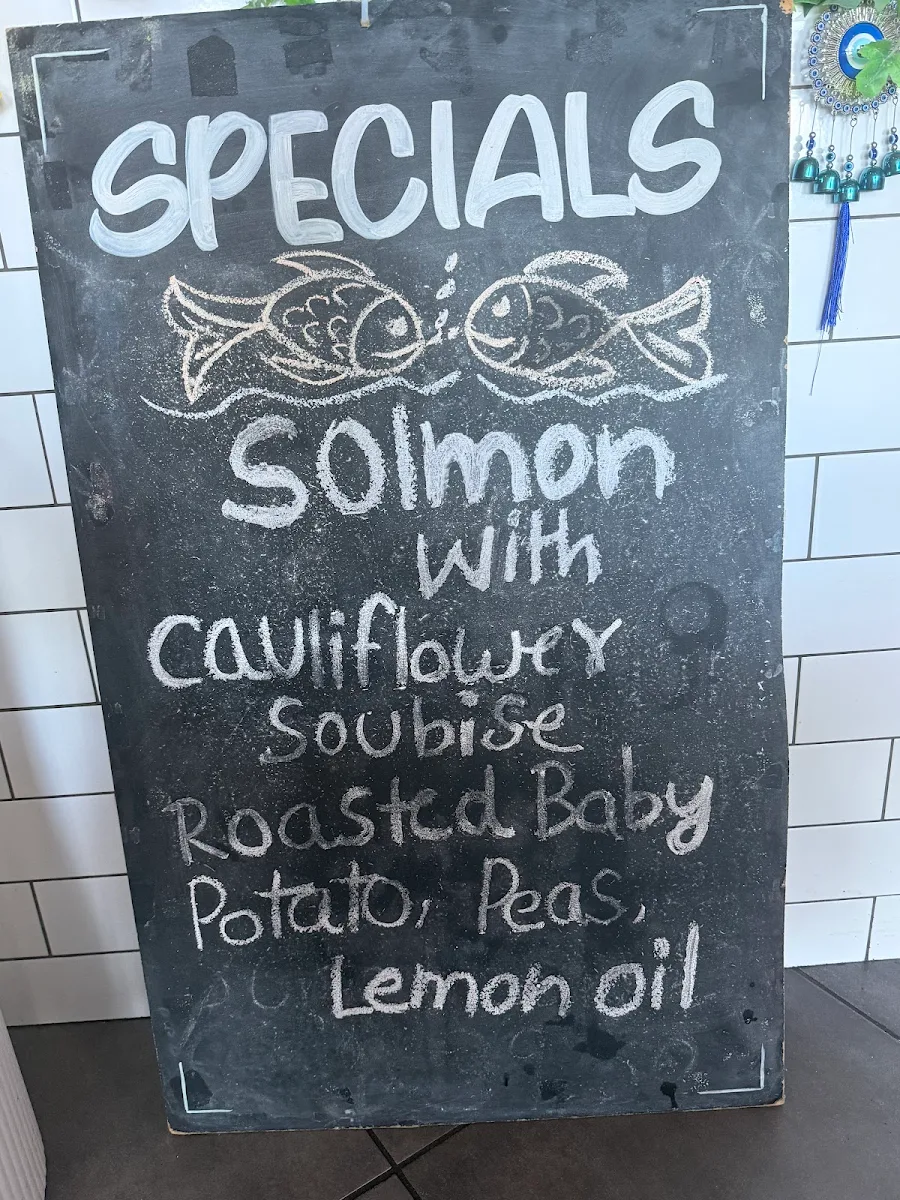 SPECIALS
Solmon
with
Cauliflower
Soubise
Roasted Baby
Potato, Peas,
Lemon oil